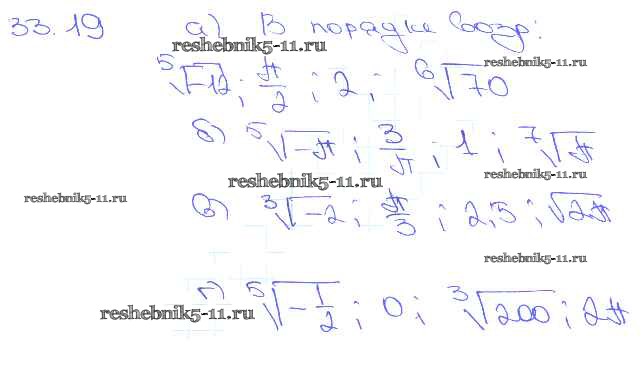 33.19 а) В порядке возр:
reshebnik5-11.ru
reshebnik5-11.ru
⁵√-12; π/2; 2; ⁶√70
б) ⁵√-π; 3/π; 1; ⁷√π
reshebnik5-11.ru
reshebnik5-11.ru
reshebnik5-11.ru
в) ³√-2; π/3; 2,5; √2π
reshebnik5-11.ru
г) ⁵√-1/2; 0; ³√200; 2π
reshebnik5-11.ru
reshebnik5-11.ru